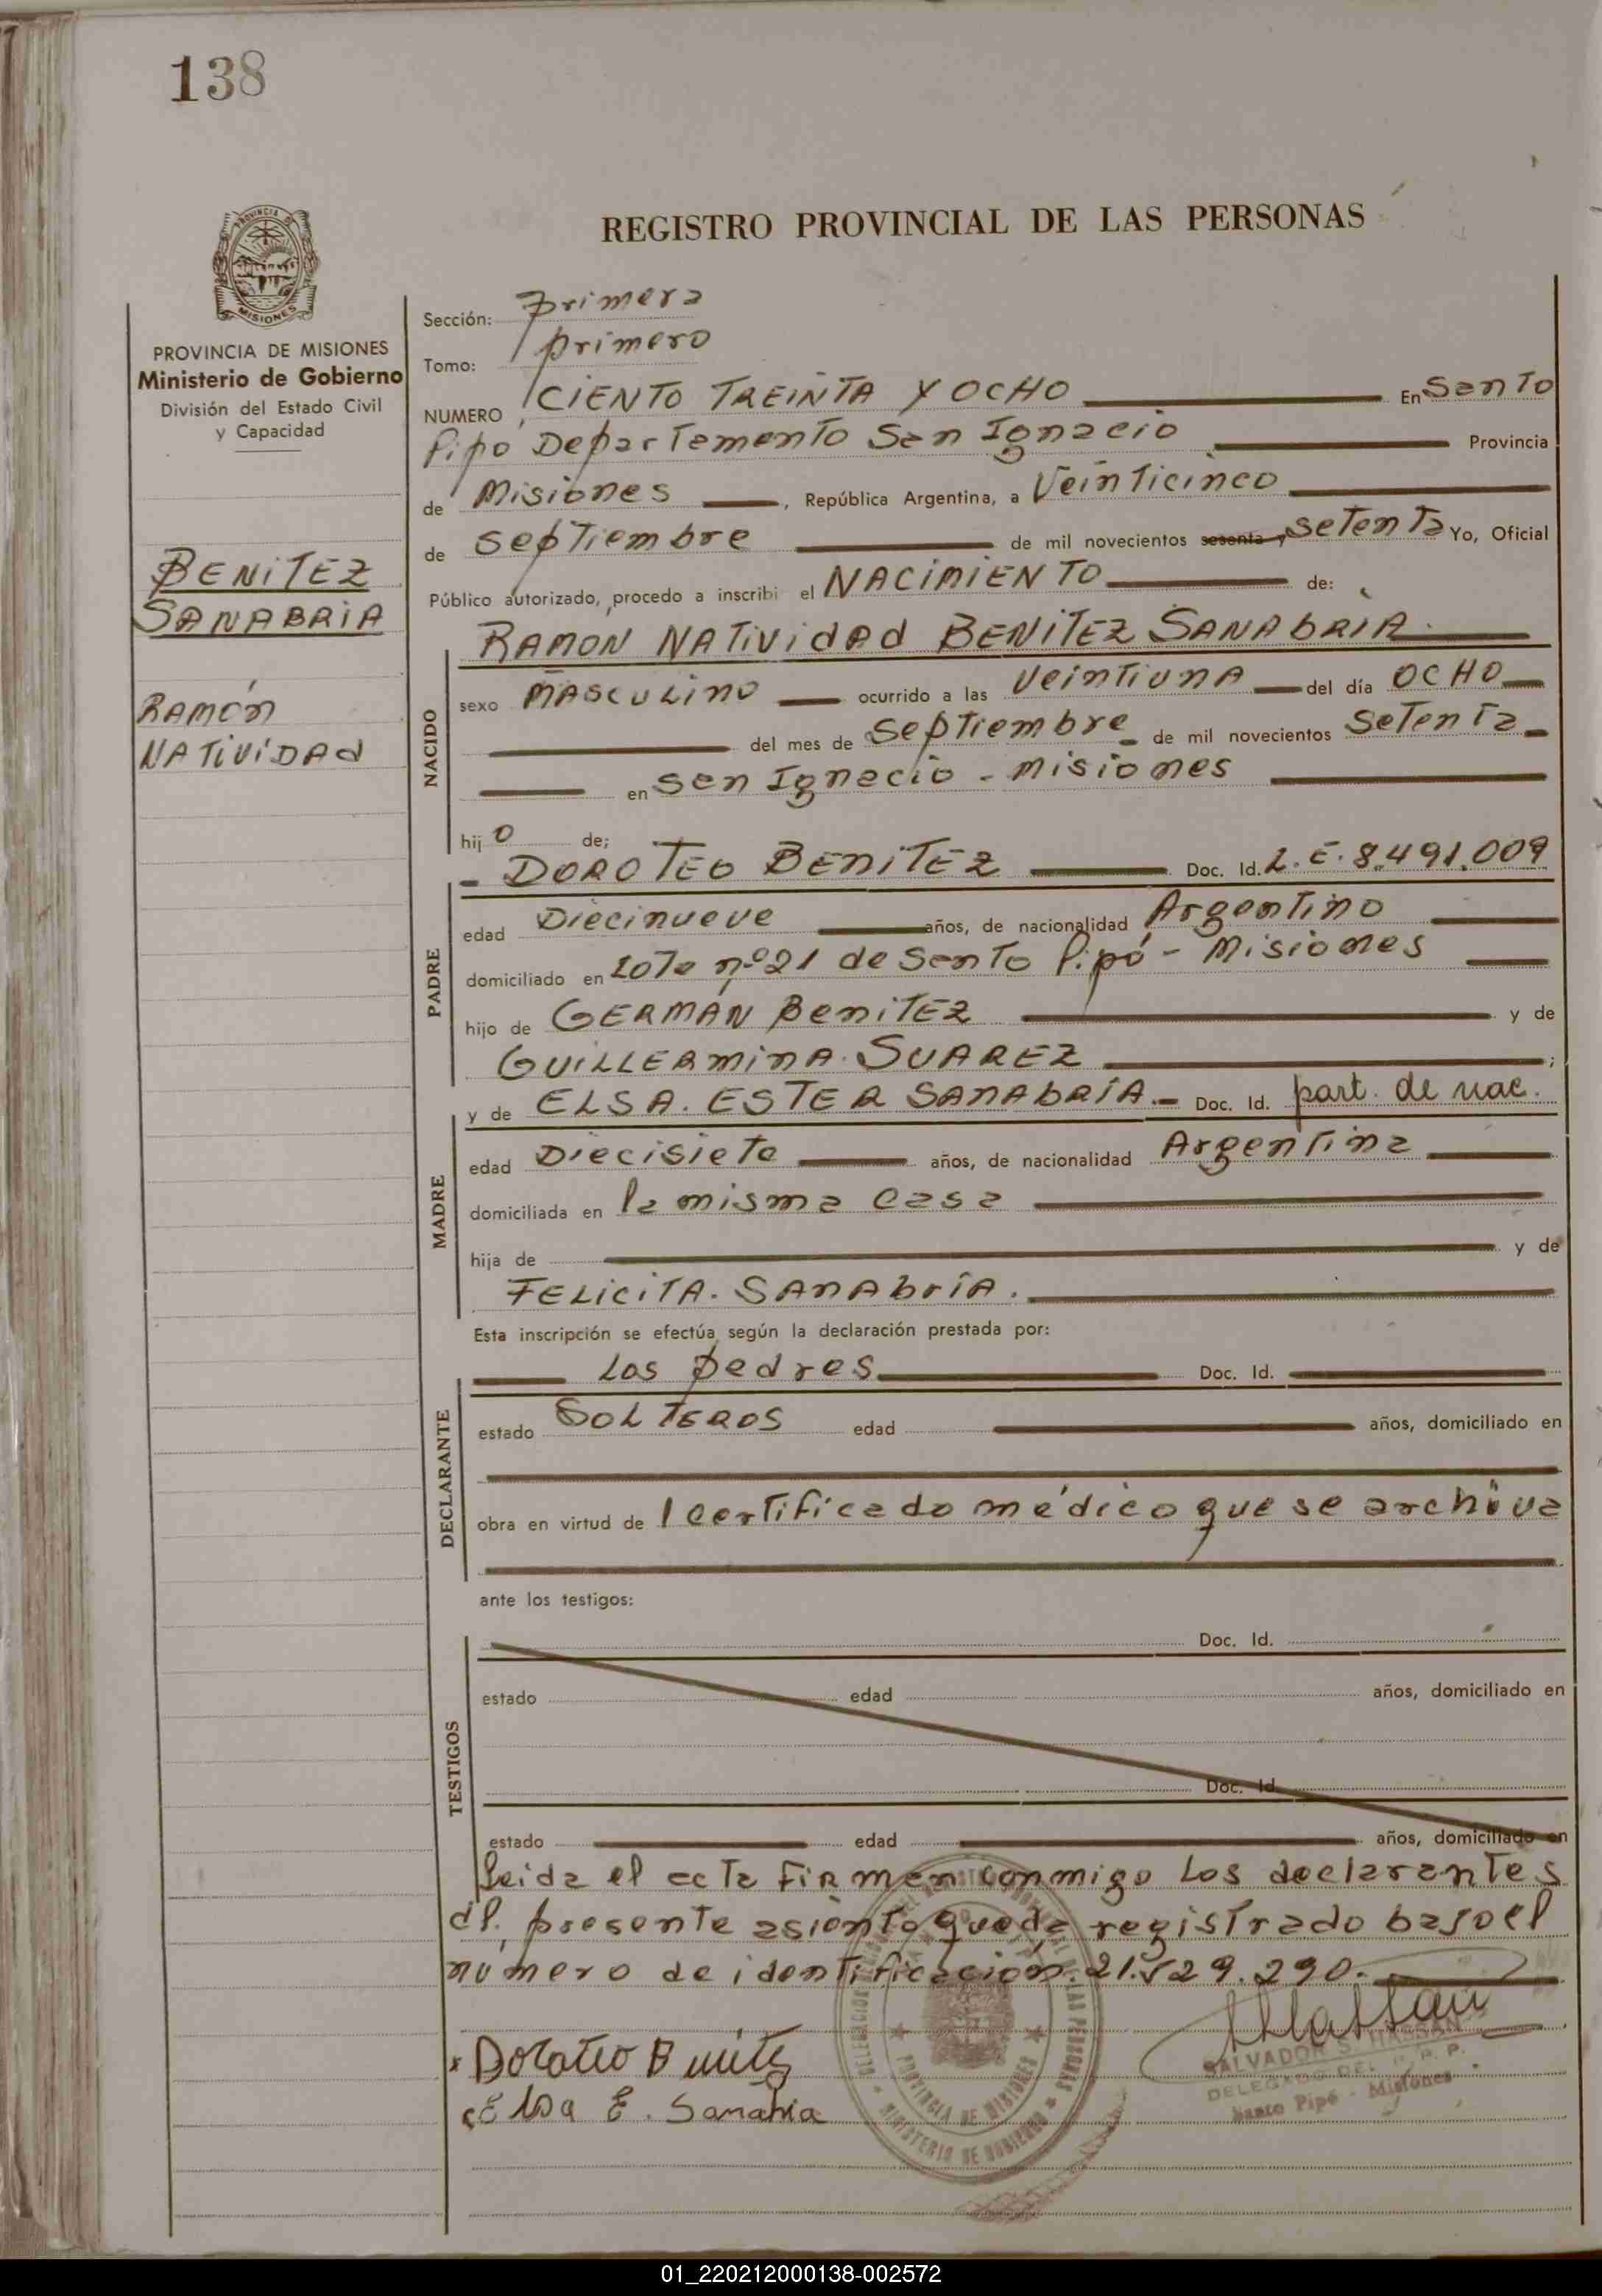 138
REGISTRO PROVINCIAL DE LAS PERSONAS
PROVINCIA DE
MISIONES
PROVINCIA DE MISIONES
Ministerio de Gobierno
División del Estado Civil
y Capacidad
BENITEZ
SANABRIA
RAMÓN
NATIVIDAD
Sección: primera
Tomo: primero
NUMERO CIENTO TREINTA Y OCHO En Santo
Pipó Departamento San Ignacio Provincia
de Misiones, República Argentina, a Veinticinco
de septiembre de mil novecientos sesenta y setenta Yo, Oficial
Público autorizado, procedo a inscribi el NACIMIENTO de:
RAMON NATIVIdAd BENITEZ SANAbRIA.
NACIDO
sexo MASCULINO ocurrido a las Veintiuna del día OCHO
del mes de septiembre de mil novecientos setenta
en San Ignacio - Misiones
hijo de;
DOROTEO BENITEZ Doc. Id. L.E. 8.491.009
PADRE
edad Diecinueve años, de nacionalidad Argentino
domiciliado en Lote nº 21 de Santo Pipó - Misiones
hijo de GERMÁN BeniTEZ y de
GUILLERMINA. SUAREZ ;
y de ELSA. ESTER SANAbRÍA.- Doc. Id. part. de nac.
MADRE
edad Diecisiete años, de nacionalidad Argentina
domiciliada en la misma casa
hija de y de
FELICITA. SANAbrÍA.
Esta inscripción se efectúa según la declaración prestada por:
Los padres Doc. Id.
DECLARANTE
estado SOLTEROS edad años, domiciliado en
obra en virtud de 1 certificado médico que se archiva
ante los testigos:
Doc. Id.
TESTIGOS
estado edad años, domiciliado en
Doc. Id.
estado edad años, domiciliado en
Leida el acta firman conmigo Los declarantes
el presente asiento queda registrado bajo el
número de identificación. 21.
Doroteo Benitez
Elsa E. Sanabria
PROVINCIA DE MISIONES
MINISTERIO DE GOBIERNO
SALVADOR S. HASSAN
DELEGADO DEL R. P. P.
Santo Pipó - Misiones
01_220212000138-002572